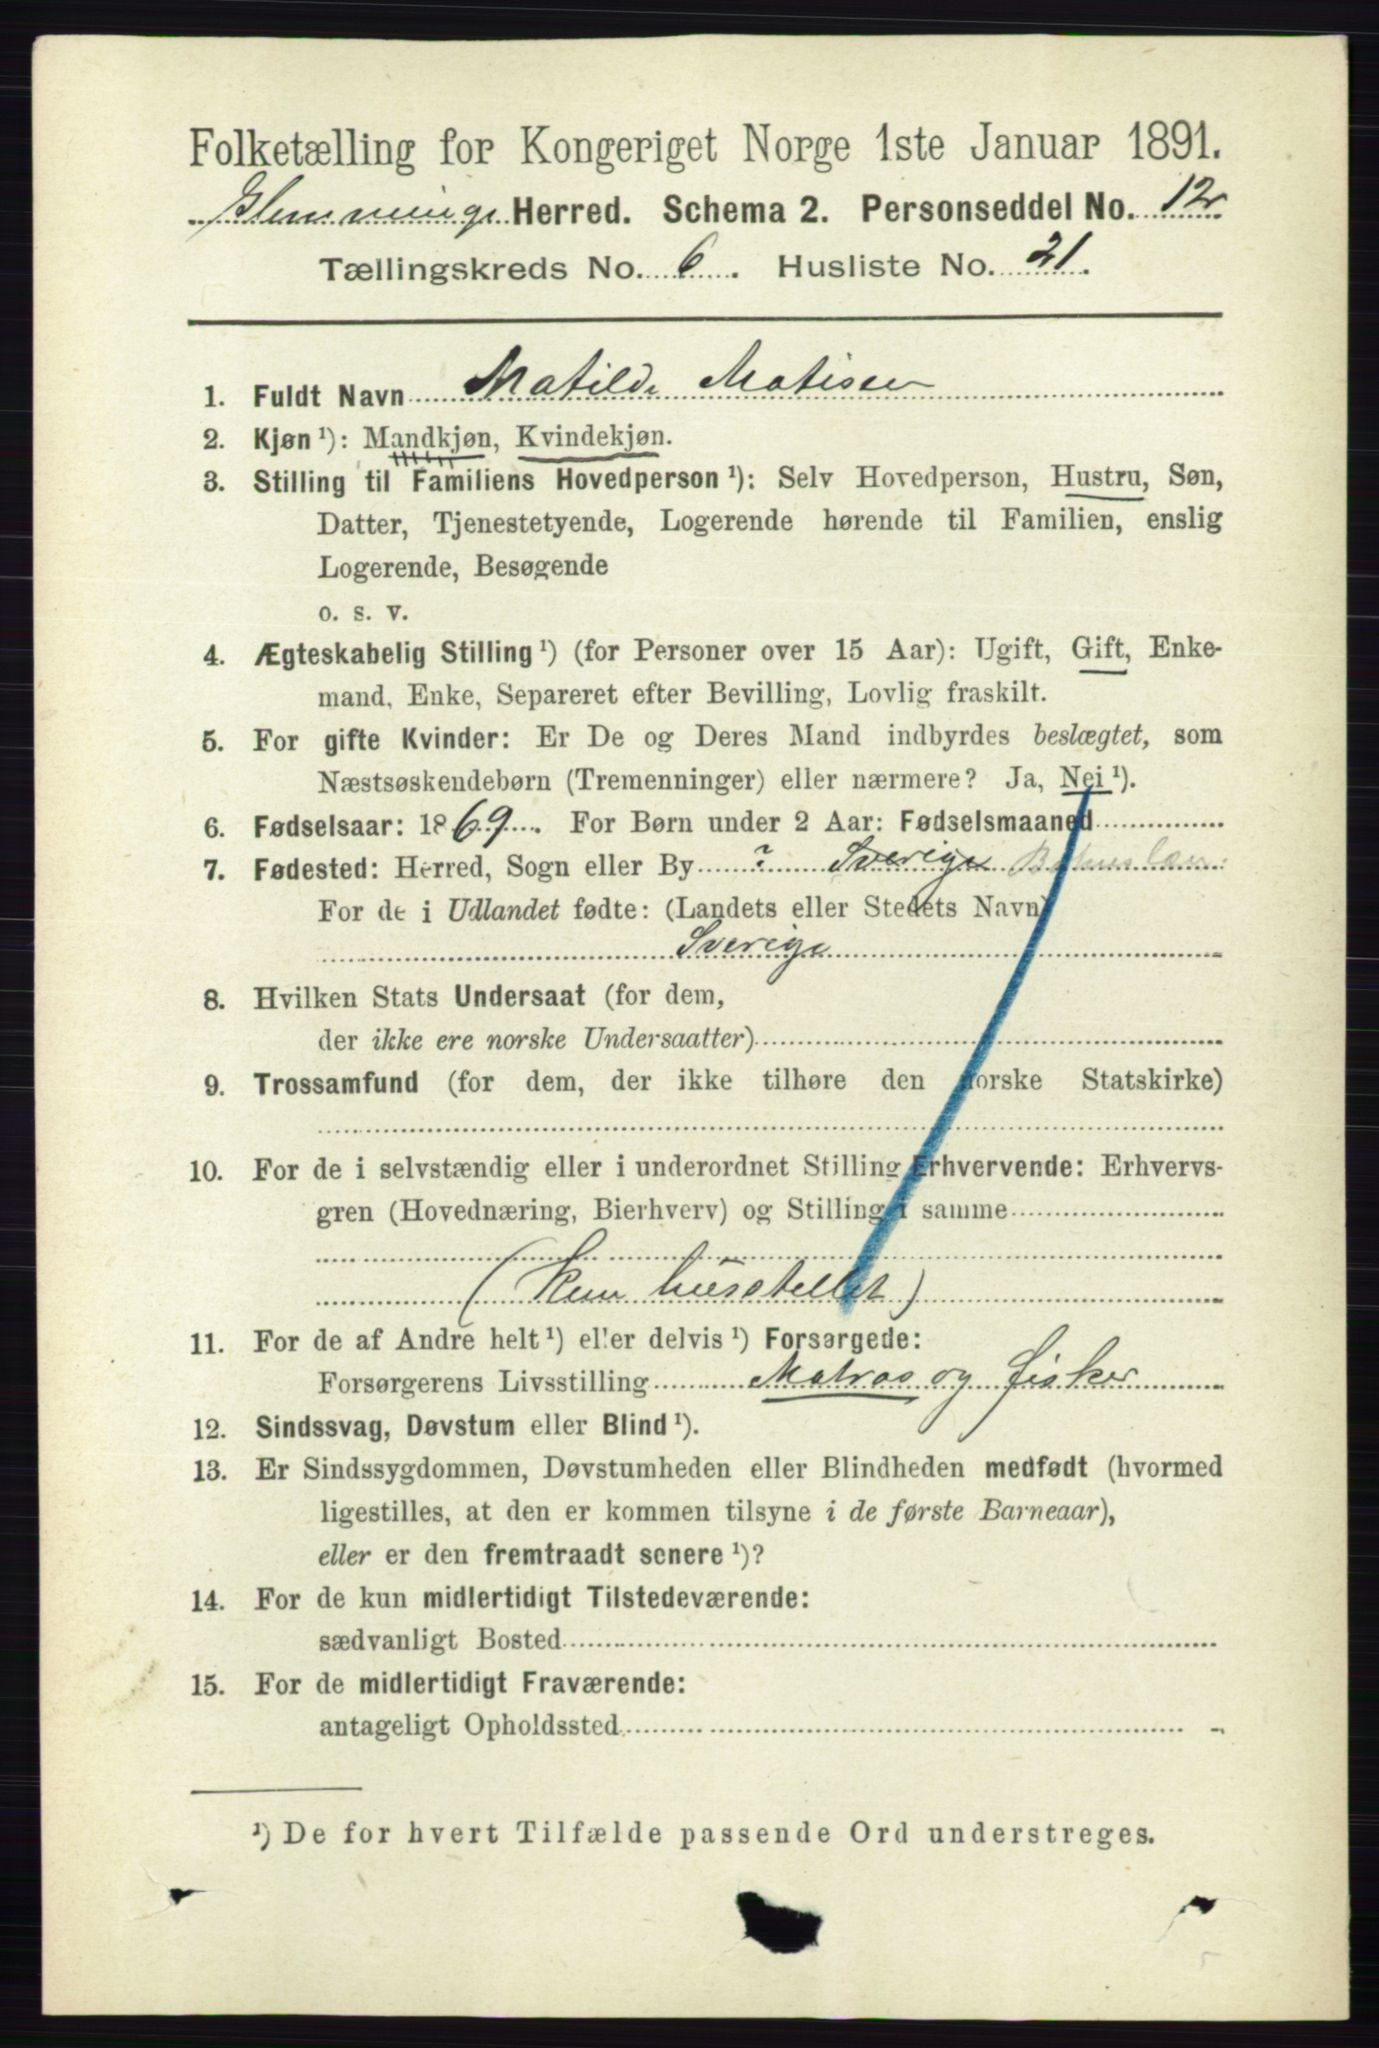 Folketælling for Kongeriget Norge 1ste Januar 1891.
Glemminge Herred. Schema 2. Personseddel No. 12
Tællingskreds No. 6. Husliste No. 21.
1. Fuldt Navn Matilde Matisen
2. Kjøn ¹): Mandkjøn, Kvindekjøn.
3. Stilling til Familiens Hovedperson ¹): Selv Hovedperson, Hustru, Søn,
Datter, Tjenestetyende, Logerende hørende til Familien, enslig
Logerende, Besøgende
o. s. v.
4. Ægteskabelig Stilling ¹) (for Personer over 15 Aar): Ugift, Gift, Enke-
mand, Enke, Separeret efter Bevilling, Lovlig fraskilt.
5. For gifte Kvinder: Er De og Deres Mand indbyrdes beslægtet, som
Næstsøskendebørn (Tremenninger) eller nærmere? Ja, Nei ¹).
6. Fødselsaar: 1869. For Børn under 2 Aar: Fødselsmaaned
7. Fødested: Herred, Sogn eller By ? Sverige Bohuslæn
For de i Udlandet fødte: (Landets eller Stedets Navn)
Sverige
8. Hvilken Stats Undersaat (for dem,
der ikke ere norske Undersaatter)
9. Trossamfund (for dem, der ikke tilhøre den norske Statskirke)
10. For de i selvstændig eller i underordnet Stilling Erhvervende: Erhvervs-
gren (Hovednæring, Bierhverv) og Stilling i samme
(kun husstellet)
11. For de af Andre helt ¹) eller delvis ¹) Forsørgede:
Forsørgerens Livsstilling Matros og fisker
12. Sindssvag, Døvstum eller Blind ¹).
13. Er Sindssygdommen, Døvstumheden eller Blindheden medfødt (hvormed
ligestilles, at den er kommen tilsyne i de første Barneaar),
eller er den fremtraadt senere ¹)?
14. For de kun midlertidigt Tilstedeværende:
sædvanligt Bosted
15. For de midlertidigt Fraværende:
antageligt Opholdssted
¹) De for hvert Tilfælde passende Ord understreges.